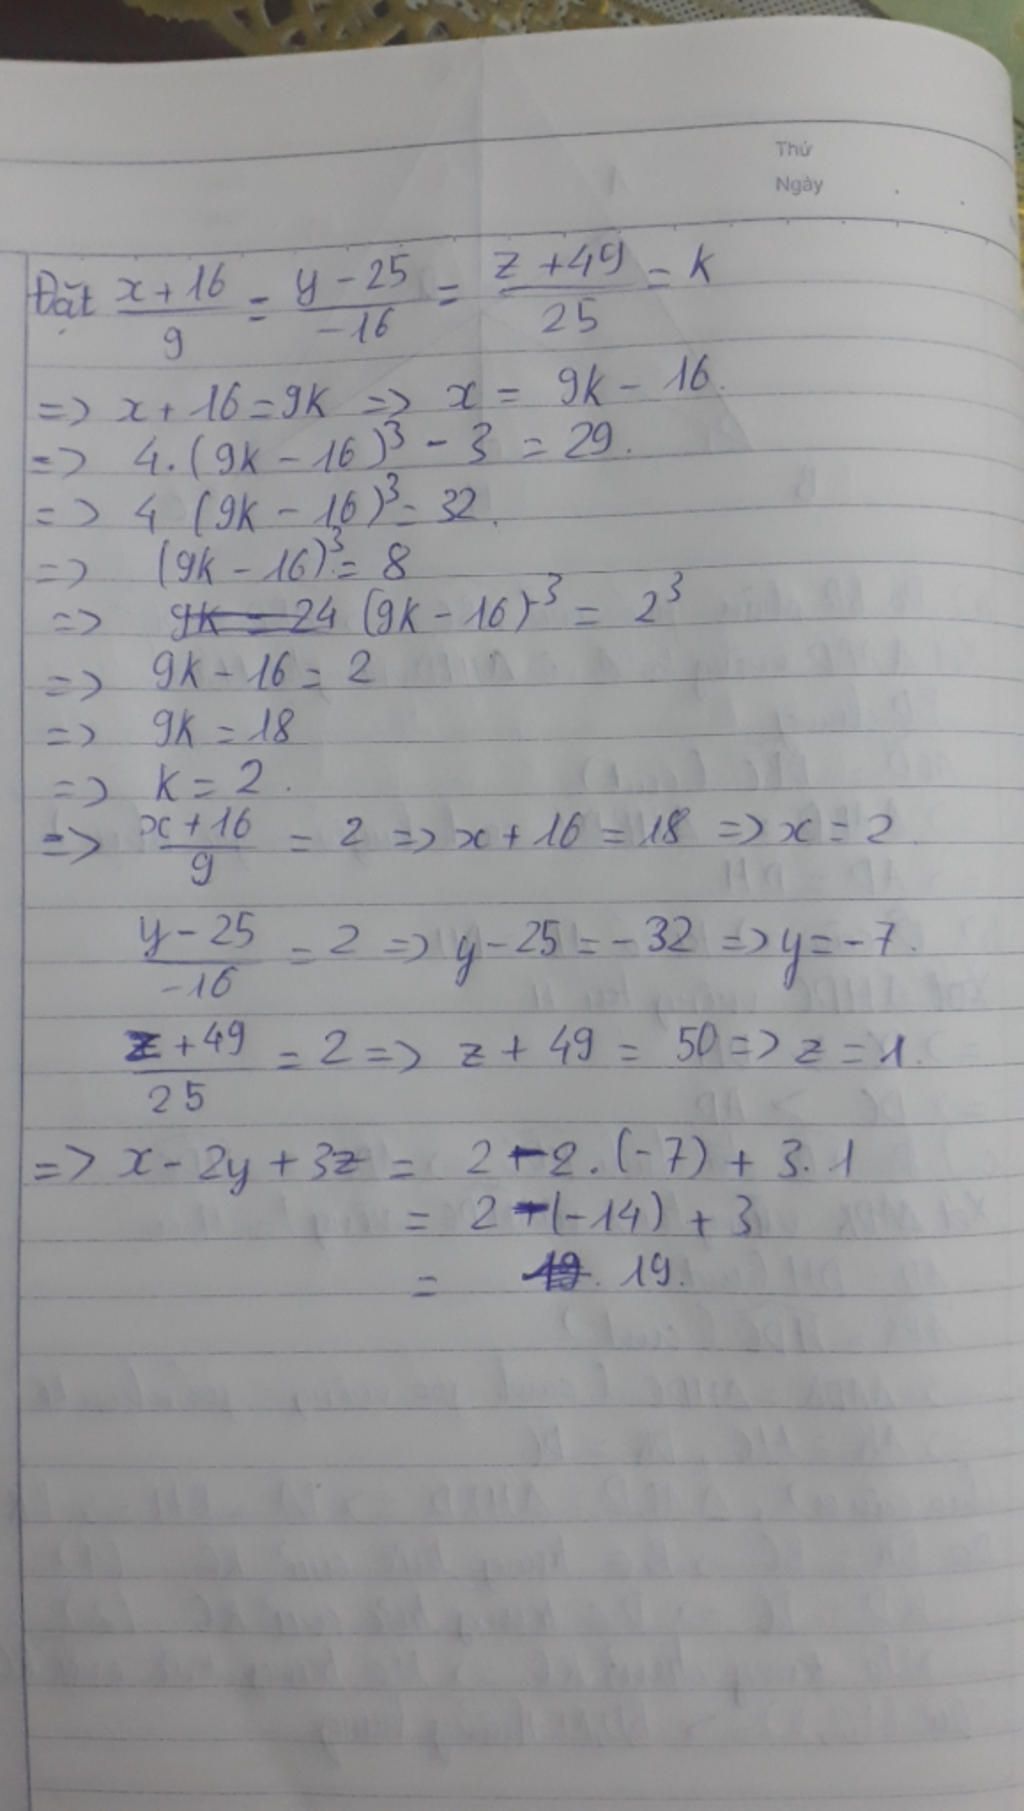 Thứ
Ngày
Đặt x+16/9 = y-25/-16 = z+49/25 = k
=> x+16=9k => x = 9k-16.
=> 4.(9k-16)³-3 = 29.
=> 4 (9k-16)³=32.
=> (9k-16)³= 8
=> 9k=24 (9k-16)³ = 2³
=> 9k-16= 2
=> 9k=18
=> k=2.
=> x+16/9 = 2 => x+16=18 => x=2.
y-25/-16 = 2 => y-25=-32 => y=-7.
z+49/25 = 2 => z+49 = 50 => z=1.
=> x-2y+3z = 2-2.(-7)+3.1
= 2-(-14)+3
= 19. 19.